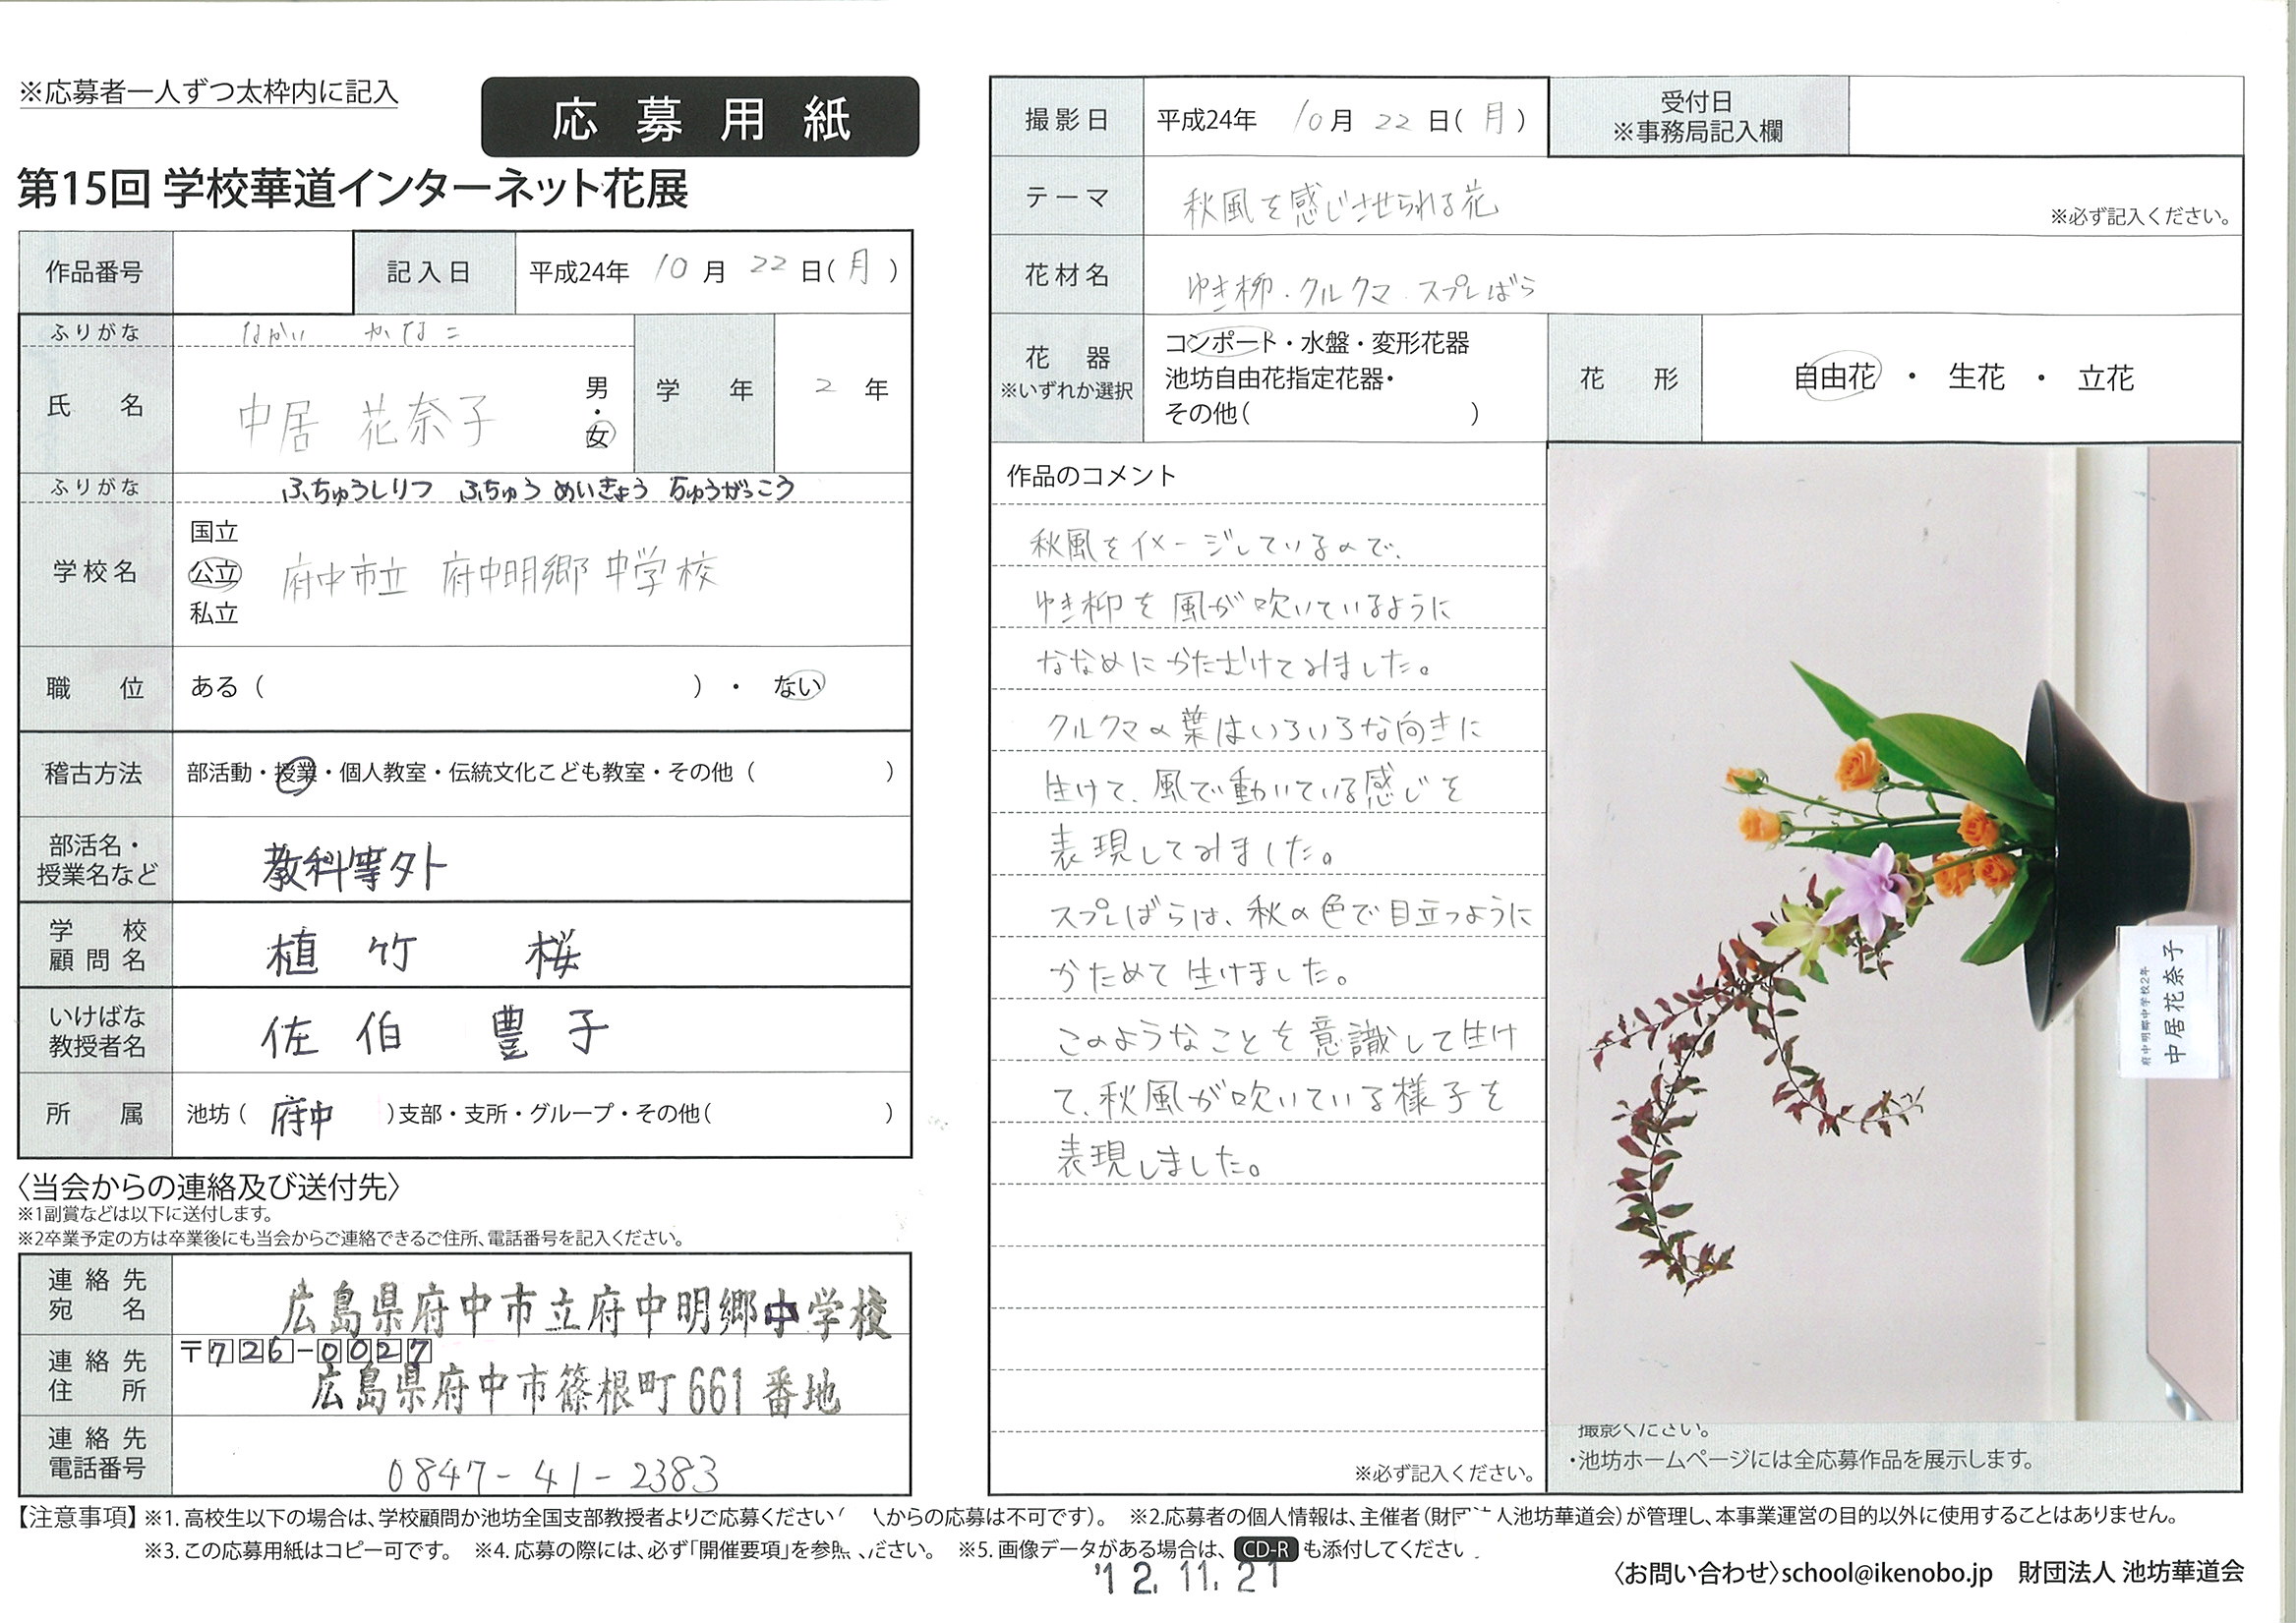 ※応募者一人ずつ太枠内に記入
応募用紙
第15回 学校華道インターネット花展
作品番号
記入日 平成24年 10月 22日(月)
ふりがな なかい かなこ
氏名 中居 花奈子 男・女
学年 2年
ふりがな ふちゅうしりつ ふちゅう めいきょう ちゅうがっこう
学校名 国立 公立 私立 府中市立 府中明郷中学校
職位 ある( )・ない
稽古方法 部活動・授業・個人教室・伝統文化こども教室・その他( )
部活名・授業名など 教科等外
学校顧問名 植竹 桜
いけばな教授者名 佐伯 豊子
所属 池坊(府中)支部・支所・グループ・その他( )
〈当会からの連絡及び送付先〉
※1副賞などは以下に送付します。
※2卒業予定の方は卒業後にも当会からご連絡できるご住所、電話番号を記入ください。
連絡先宛名 広島県府中市立府中明郷中学校
連絡先住所 〒726-0027
広島県府中市篠根町661番地
連絡先電話番号 0847-41-2383
撮影日 平成24年 10月 22日(月)
受付日
※事務局記入欄
テーマ 秋風を感じさせられる花 ※必ず記入ください。
花材名 ゆき柳・クルクマ・スプレばら
花器 ※いずれか選択
コンポート・水盤・変形花器
池坊自由花指定花器・
その他( )
花形 自由花・生花・立花
作品のコメント
秋風をイメージしているので、
ゆき柳を風が吹いているように
ななめにかたむけてみました。
クルクマの葉はいろいろな向きに
生けて、風で動いている感じを
表現してみました。
スプレばらは、秋の色で目立つように
かためて生けました。
このようなことを意識して生け
て、秋風が吹いている様子を
表現しました。
※必ず記入ください。
府中明郷中学校2年
中居花奈子
撮影ください。
・池坊ホームページには全応募作品を展示します。
【注意事項】※1.高校生以下の場合は、学校顧問か池坊全国支部教授者よりご応募ください( 人からの応募は不可です)。 ※2.応募者の個人情報は、主催者(財団法人池坊華道会)が管理し、本事業運営の目的以外に使用することはありません。
※3.この応募用紙はコピー可です。 ※4.応募の際には、必ず「開催要項」を参照ください。 ※5.画像データがある場合は、CD-Rも添付してください。
'12.11.21
〈お問い合わせ〉school@ikenobo.jp 財団法人 池坊華道会